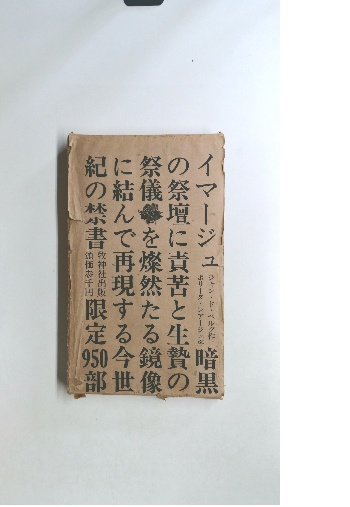 イマージュ ジャン・ド・ベルグ作 暗黒
の祭壇に責苦と生贄の
祭儀を燦然たる鏡像
に結んで再現する今世
紀の禁書 牧神社出版 頒価参千円 限定950部